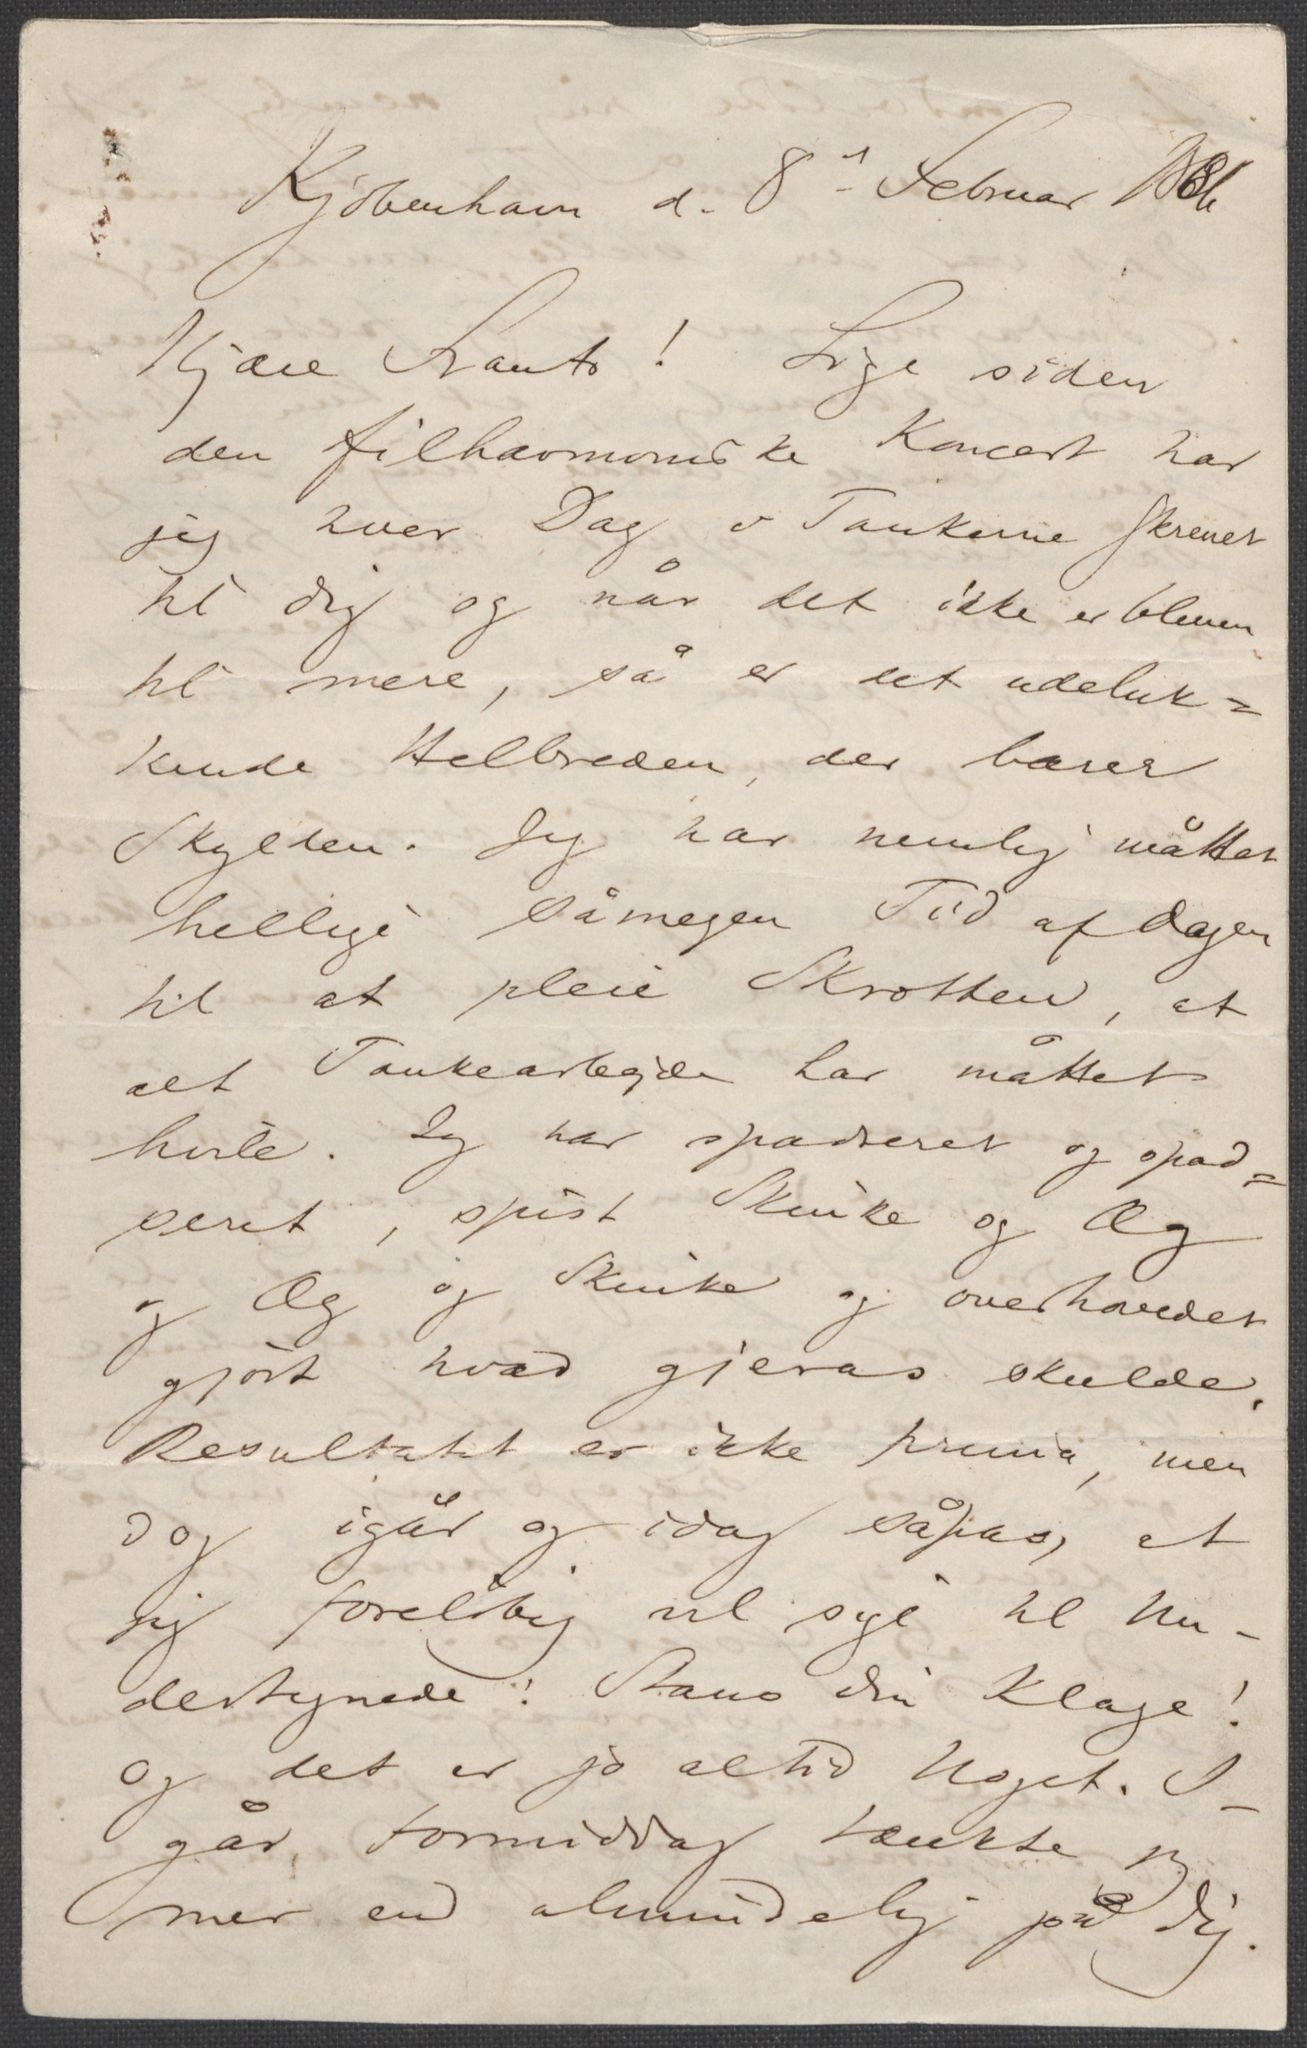 Kjöbenhavn d. 8d Februar 1886
Kjære Frants! Lige siden
den filharmoniske Koncert har
jeg hver Dag i Tankerne skrevet
til dig og når det ikke er bleven
til mere, så er det udeluk=
kende Helbreden, der bærer
Skylden. Jeg har nemlig måttet
hellige såmegen Tid af Dagen
til at pleie Skrotten, at
alt Tankearbejde har måttet
hvile. Jg har spadseret og spad=
seret, spist Skinke og Æg
og Æg og Skinke og overhovedet
gjört hvad gjøres skulde.
Resultatet er ikke prima, men
dog igår og idag såpas, at
jeg forelöbig vil sige til Un-
dertegnede: Stans din Klage!
Og det er jo altid Noget. I-
går Formiddag tænkte jeg
mer end almindelig på Dig.